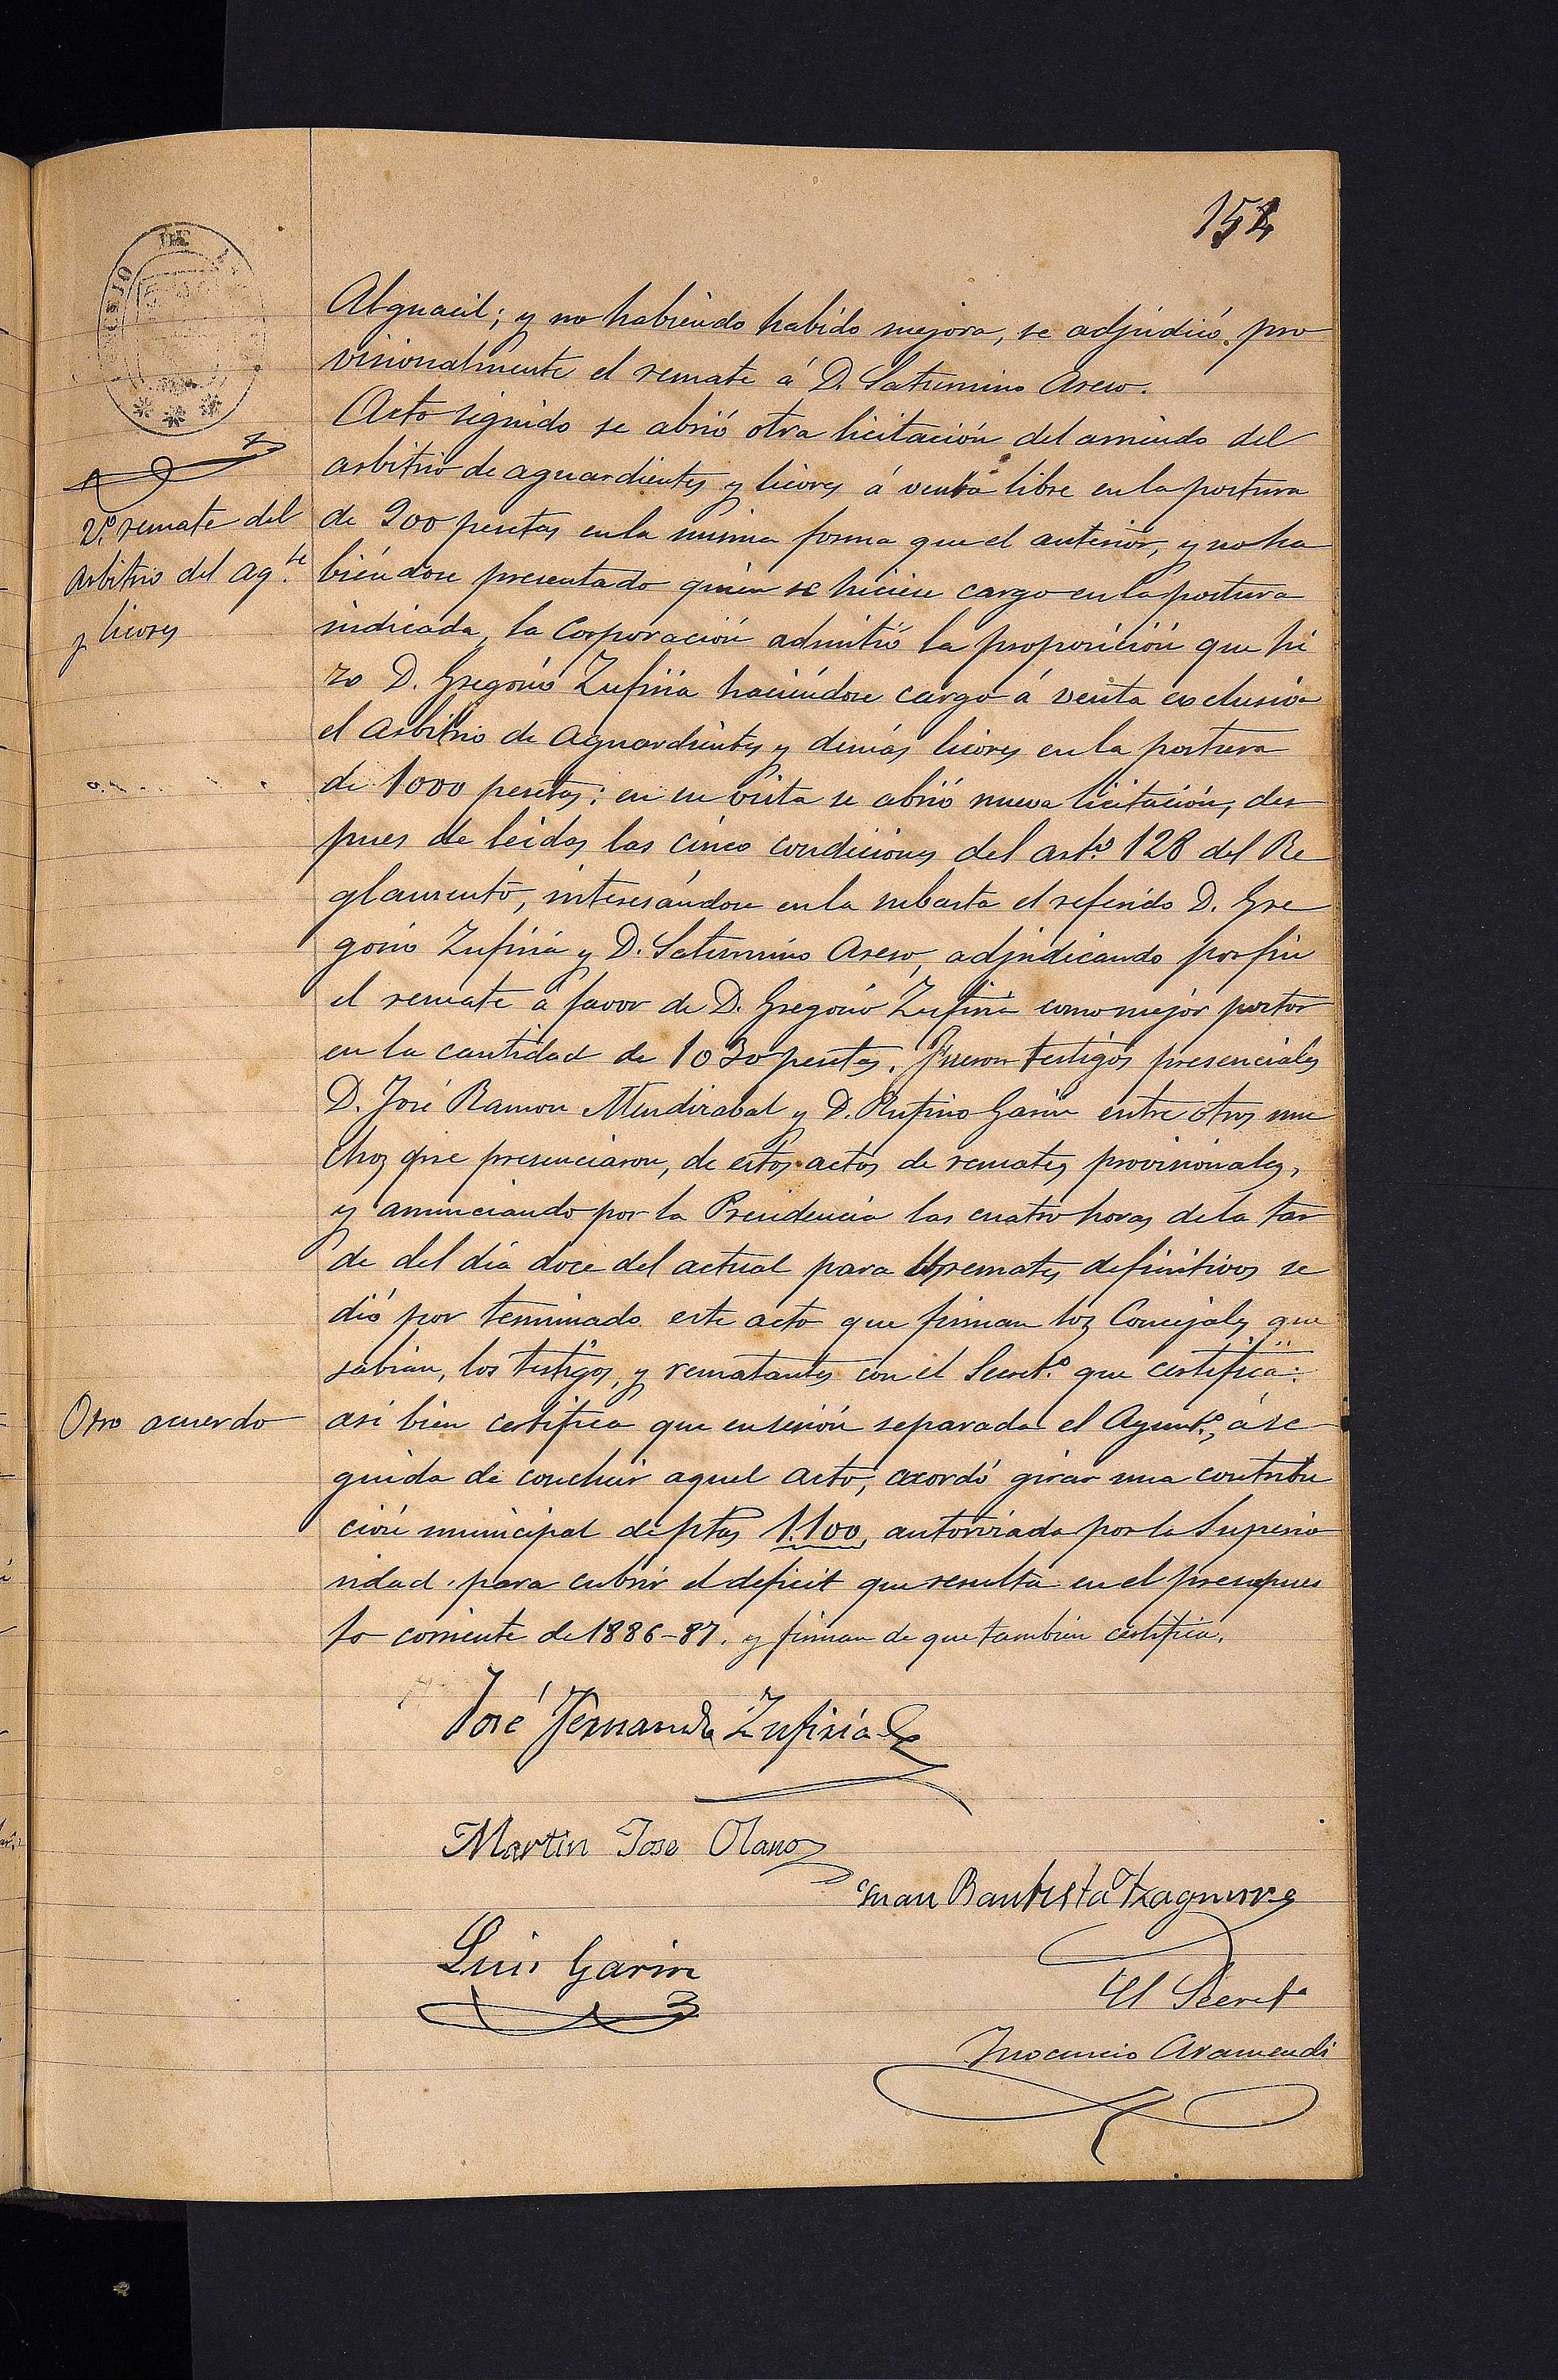 154
DE
Alguacil; y no habiendo habido mejora, se adjudicó pro
visionalmente el remate á D. Saturnino Areso.
Acto seguido se abrió otra licitación del arriendo del
arbitrio de aguardientes y licores á venta libre en la postura
2.º remate del
arbitrio del ag.te
y licores
de 900 pesetas en la misma forma que el anterior, y no ha
biéndose presentado quien se hiciese cargo en la postura
indicada, la Corporación admitió la proposición que hi
zo D. Gregorio Zufiria haciéndose cargo á venta exclusiva
el arbitrio de Aguardientes y demás licores en la postura
de 1000 pesetas: en su vista se abrió nueva licitación, des
pues de leidas las cinco condiciones del arto. 128 del Re
glamento, interesándose en la subasta el referido D. Gre
gorio Zufiria y D. Saturnino Areso, adjudicando por fin
el remate á favor de D. Gregorio Zufiria como mejor postor
en la cantidad de 1030 pesetas. Fueron testigos presenciales
D. José Ramon Mendizabal y D. Rufino Garin entre otros mu
chos que presenciaron, de estos actos de remates provisionales,
y anunciando por la Presidencia las cuatro horas de la tar
de del dia doce del actual para remates definitivos se
dió por terminado este acto que firman los Concejales que
sabian, los testigos, y rematantes con el Secret.º que certifica:
Otro acuerdo
asi bien certifica que en sesión separada el Ayunt.º, á se
guida de concluir aquel acto, acordó girar una contribu
ción municipal de ptas 1.100, autorizada por la Superio
ridad para cubrir el deficit que resulta en el presupues
to corriente de 1886-87. y firman de que tambien certifica.
José Fernando Zufiria
Martin Jose Olano
Juan Bautista Izaguirre
Luis Garin
El Secret.º
Inocencio Aramendi